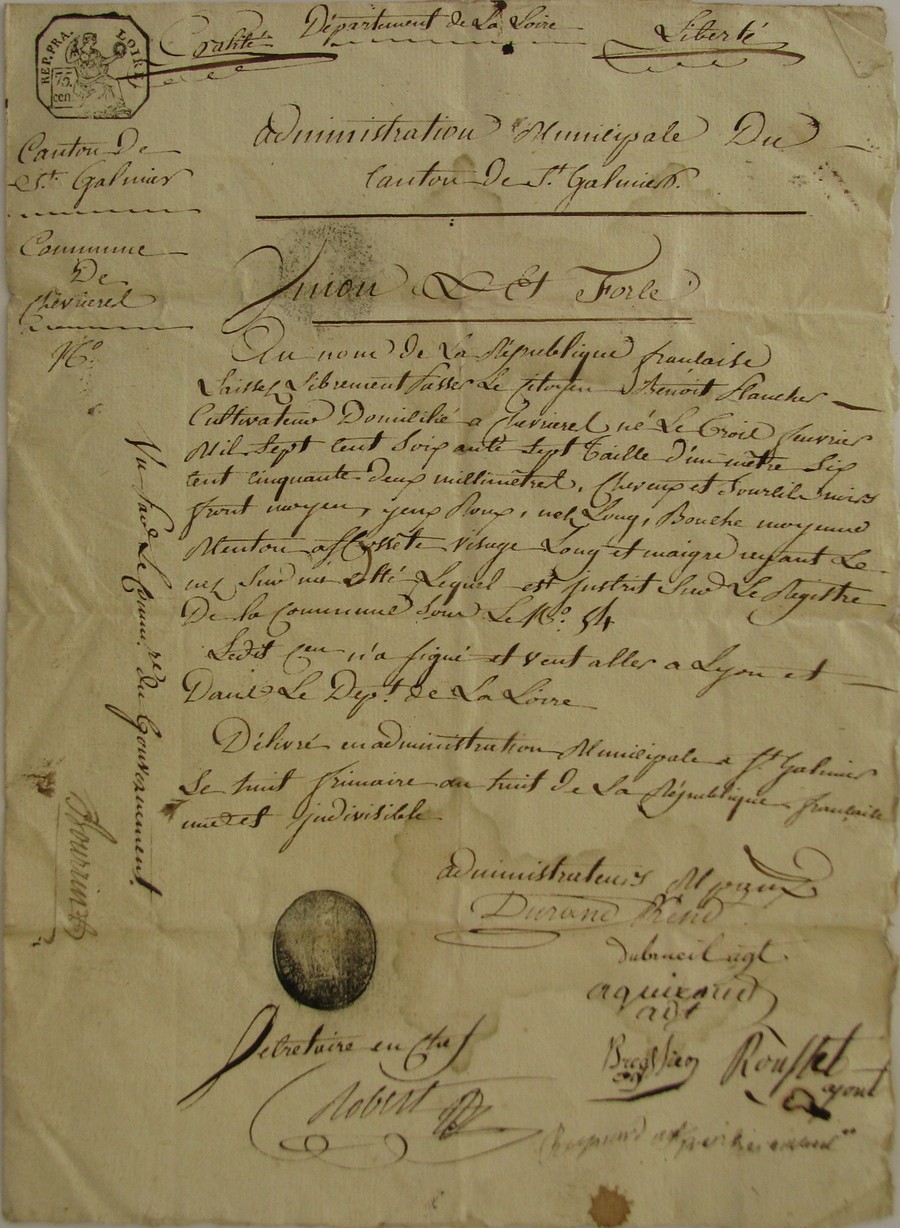 REP. FRA. LOIRE
75 cen
Egalité Département de La Loire Liberté
administration Municipale Du
Canton de St. Galmier
Canton de
St. Galmier
Commune
De
Chevrierel
No.
Union Et Force
Au nom de La République francaise
Laissez Librement Passer Le Citoyen Benoit Plancher
Cultivateur Domicilié a Chevrierel né Le Trois fevrier
Mil Sept Cent Soixante Sept Taille d'un mêtre Six
Cent Cinquante deux millimetres, Cheveux et Sourcils noirs
front moyen, yeux Roux, nez Long, Bouche moyenne
Menton a fossete visage Long et maigre ayant Le
nez Sur un Côtté Lequel est inscrit Sur Le Registre
De la Commune Sous Le No. 54
Ledit Cen n'a signé et veut aller a Lyon et
Dans Le Dept. de La Loire
Délivré en administration Municipale a St. Galmier
Le huit frimaire an huit de La République francaise
une et indivisible
Vu par Le Comm.re du Gouvernement
administrateurs
Durand
dubrueil agt
agt
Secretaire en Chef
Rousset
Robert